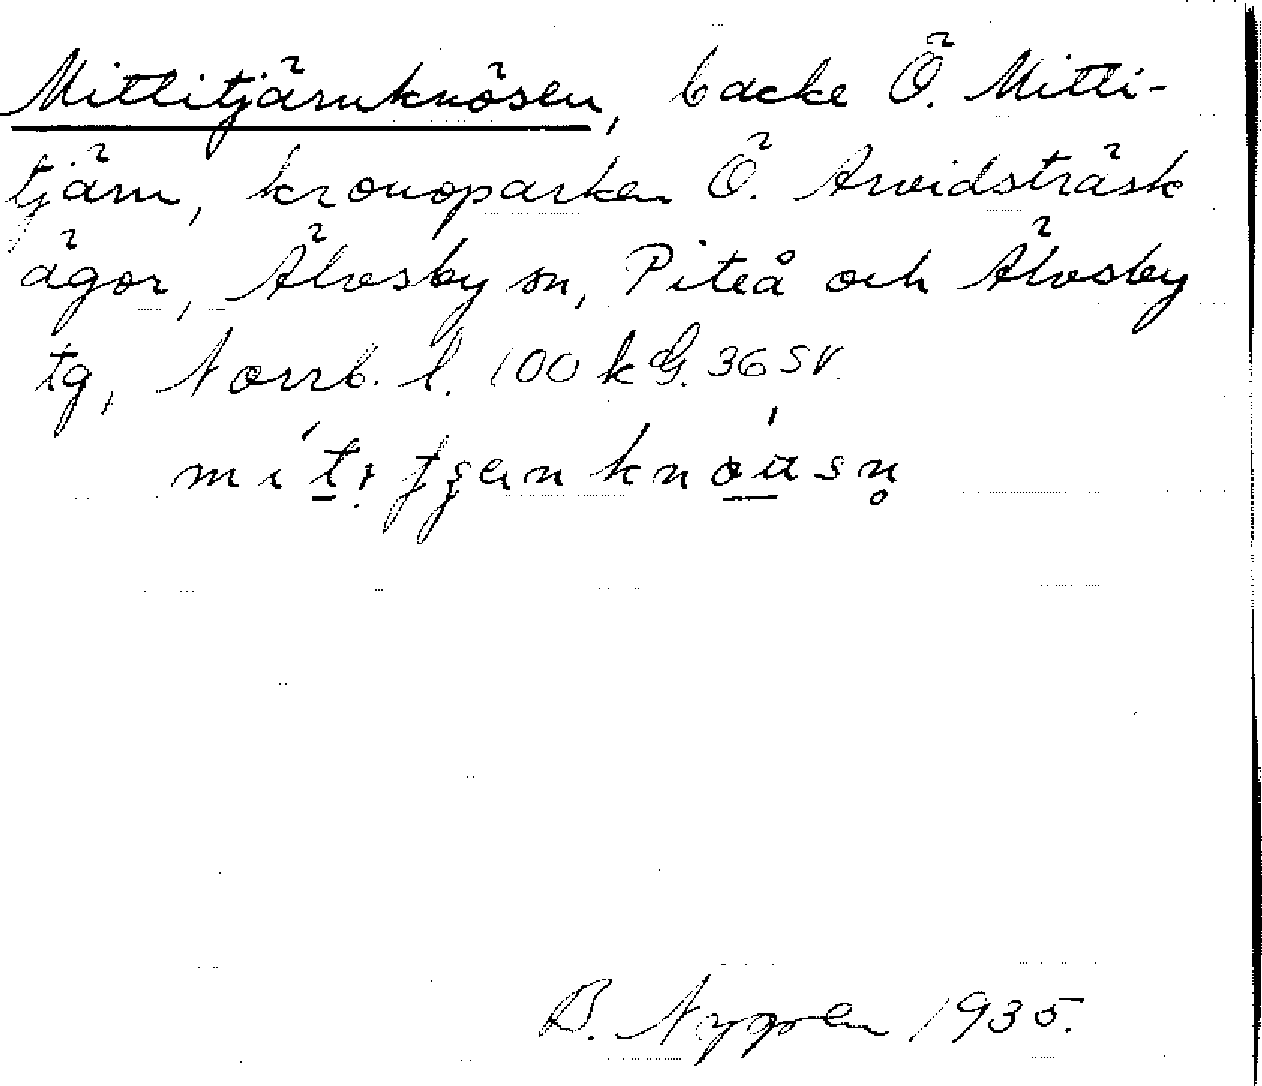 Mittitjärnknösen, backe Ö. Mitti-
tjärn, kronoparken Ö. Arvidsträsk
ägor, Älvsby sn, Piteå och Älvsby
tg, Norrb. l. 100 k G. 36 SV.
B. Nygren 1935.